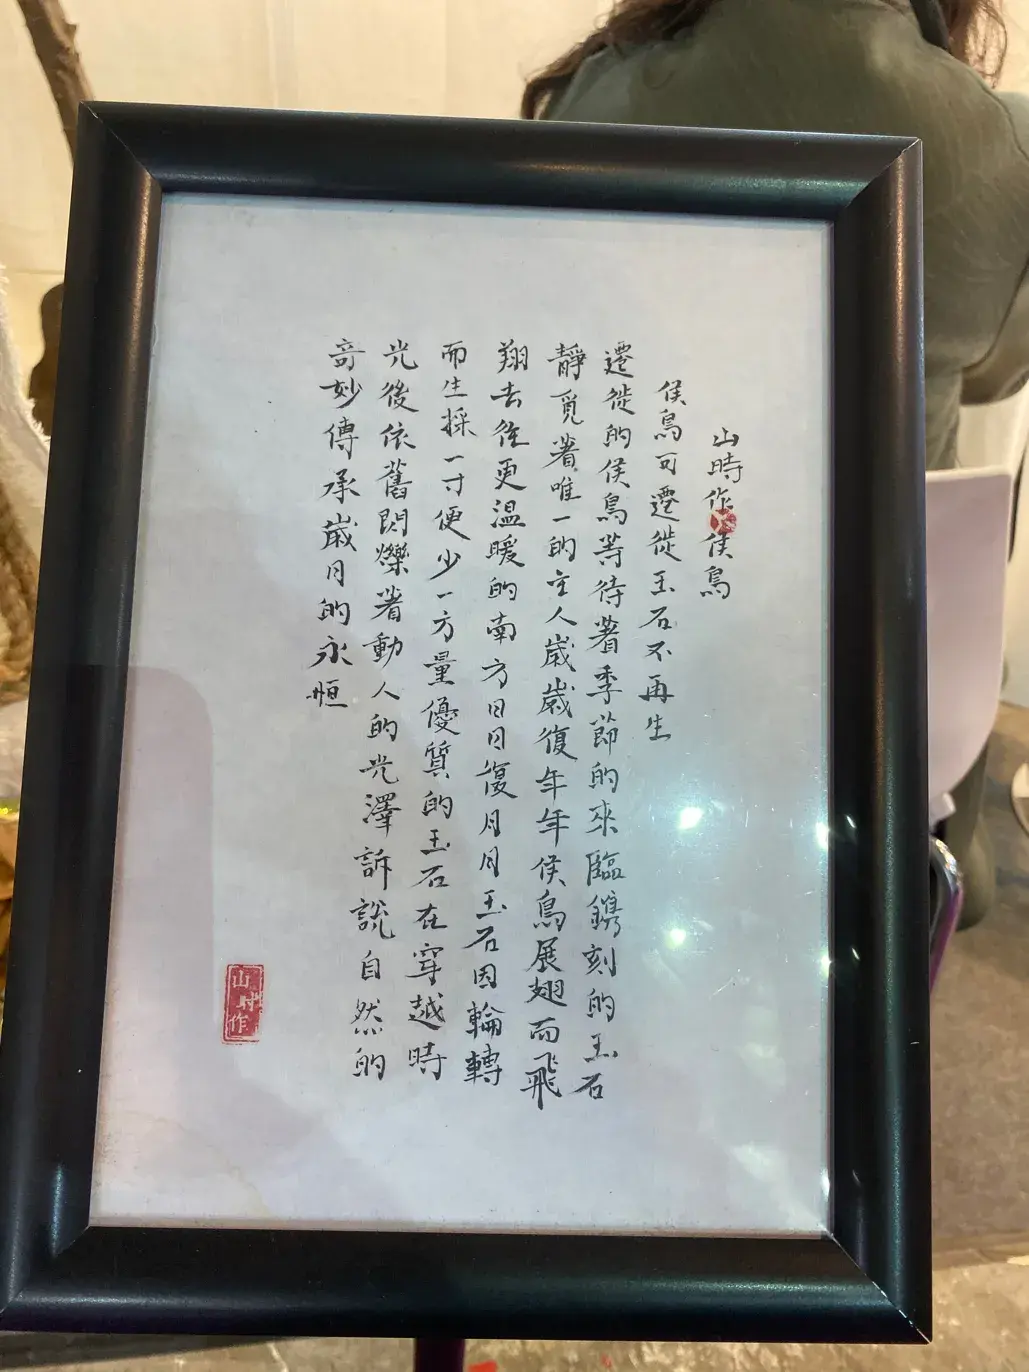 山時作侯鳥
侯鳥可遷徙玉石不再生
遷徙的侯鳥等待著季節的來臨鐫刻的玉石
靜覓著唯一的主人歲歲復年年侯鳥展翅而飛
翔去往更溫暖的南方日日復月月玉石因輪轉
而生採一寸便少一方量優質的玉石在穿越時
光後依舊閃爍著動人的光澤訴說自然的
奇妙傳承歲月的永恒
山时作